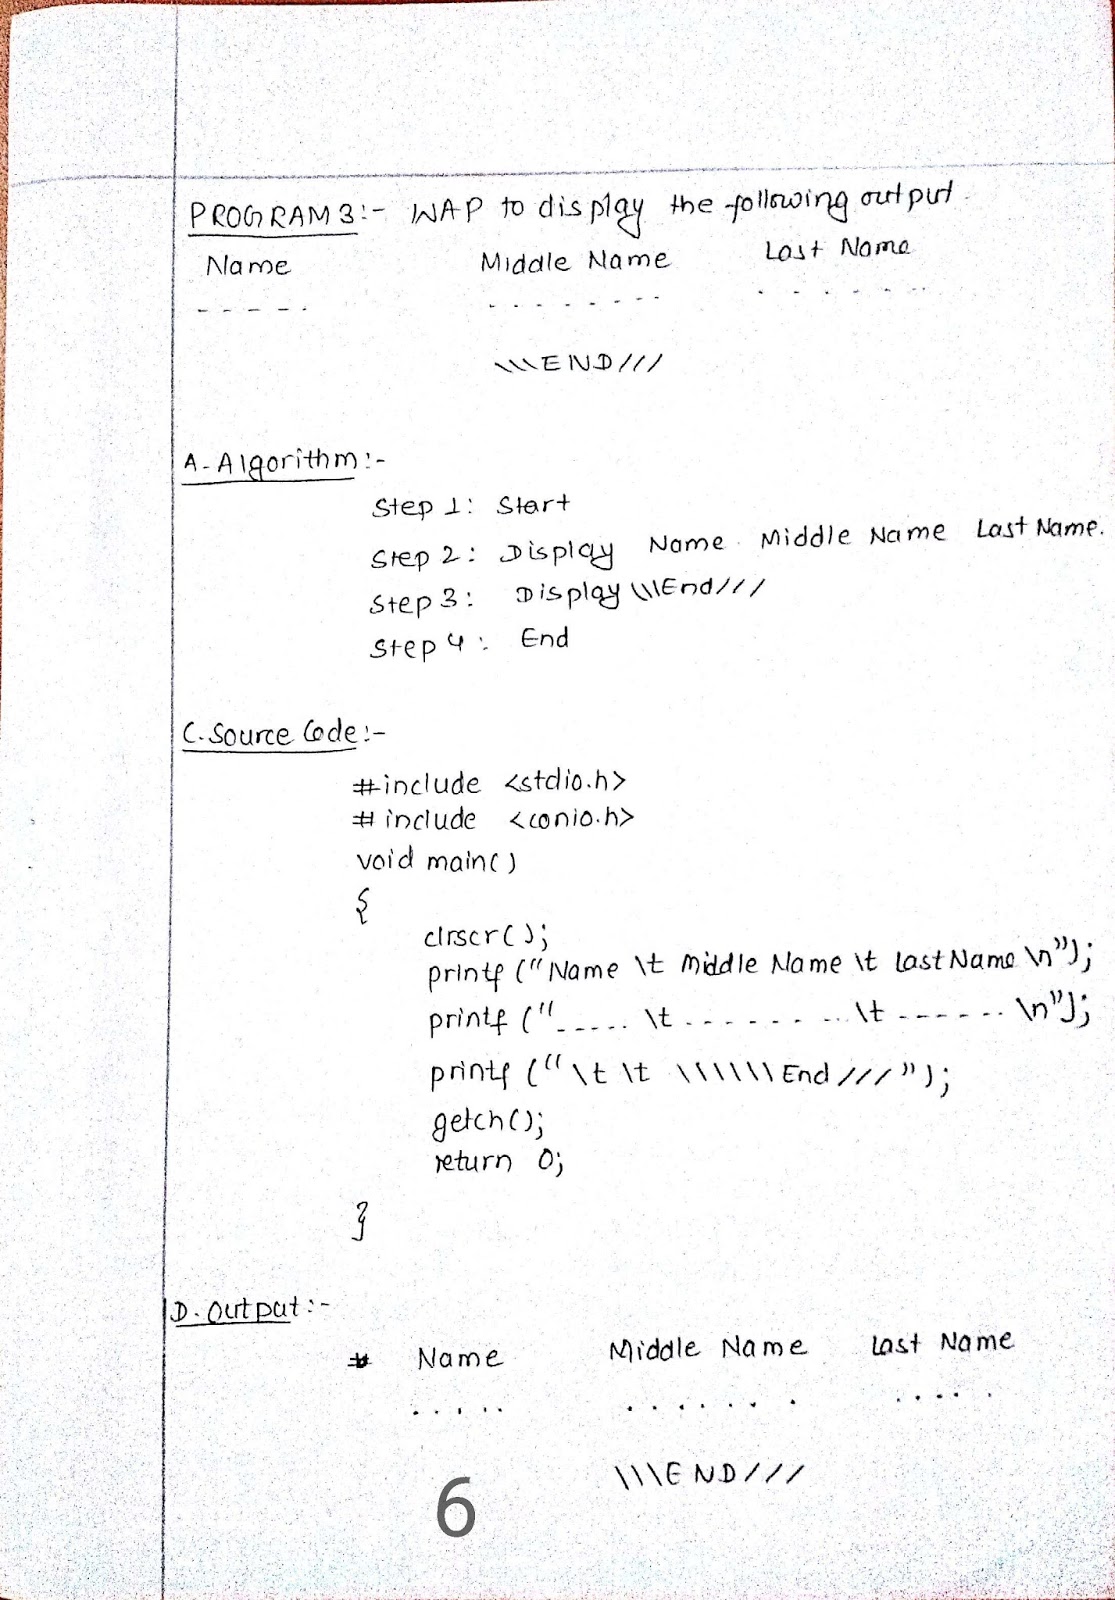 PROGRAM 3:- WAP to display the following output.
Name Middle Name Last Name
- - - - - - - - - - - - - - - - - - - -
\\\END///
A. Algorithm:-
Step 1: Start
Step 2: Display Name Middle Name Last Name.
Step 3: Display \\\End///
Step 4: End
C. Source Code:-
#include <stdio.h>
# include <conio.h>
void main()
{
clrscr();
printf ("Name \t Middle Name \t Last Name \n");
printf ("----- \t --------- \t ------ \n");
printf ("\t \t \\\\\\End///");
getch();
return 0;
}
D. Output:-
* Name Middle Name Last Name
. . . . . . . . . . . . . . . . .
\\\END///
6